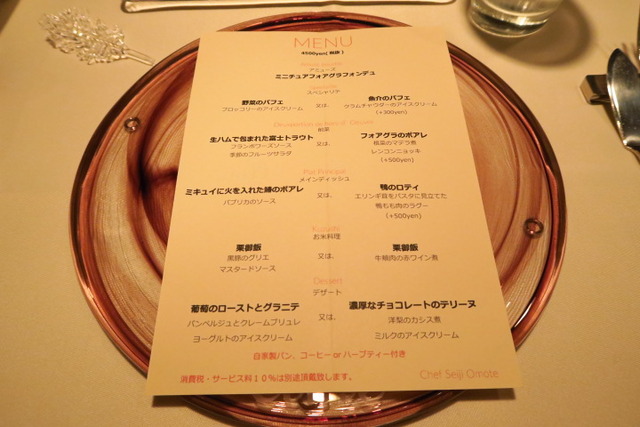 MENU
4500yen( 税抜 )
アミューズ
ミニチュアフォアグラフォンデュ
スペシャリテ
野菜のパフェ 又は、 魚介のパフェ
ブロッコリーのアイスクリーム クラムチャウダーのアイスクリーム
(+300yen)
前菜
生ハムで包まれた富士トラウト 又は、 フォアグラのポアレ
フランボワーズソース 根菜のマデラ煮
季節のフルーツサラダ レンコンニョッキ
(+500yen)
Plat Principal
メインディッシュ
ミキュイに火を入れた鰆のポアレ 又は、 鴨のロティ
パプリカのソース エリンギ茸をパスタに見立てた
鴨もも肉のラグー
(+500yen)
お米料理
栗御飯 又は、 栗御飯
黒豚のグリエ 牛頬肉の赤ワイン煮
マスタードソース
Dessert
デザート
葡萄のローストとグラニテ 又は、 濃厚なチョコレートのテリーヌ
パンペルジュとクレームブリュレ 洋梨のカシス煮
ヨーグルトのアイスクリーム ミルクのアイスクリーム
自家製パン、コーヒー or ハーブティー付き
消費税・サービス料１０％は別途頂戴致します。
Chef Seiji Omote